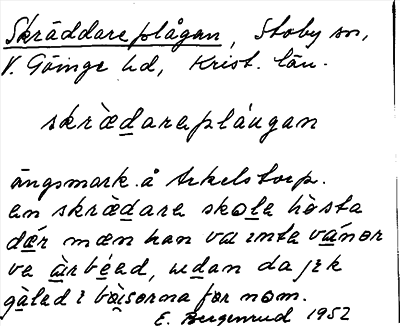 Skräddareplågan, Stoby sn,
V. Göinge hd, Krist. län.
skràdareplåugan
ängsmark å Ankelstorp.
en skràdare skole hòsta
dær mæn han va inte vánor
ve àrbéed, udan da jek
gàled i bàiserna for nom.
E. Bergenrud 1952